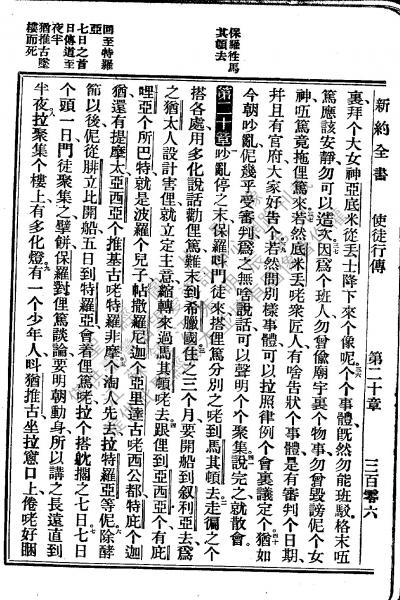 新約全書 使徒行傳 第二十章 三百零六
裏拜个大女神亞底米從丟士降下來个像呢个个事體旣然勿能班駁格末吪
篤應該安靜勿可以造次因爲个班人勿曾偸廟宇裏个物事勿曾毀謗伲个女
神吪篤竟拖俚篤來若然底米丟咾衆匠人有啥告狀个事體是有審判个日期
亦有官府大家好告若然問別樣事體可以拉照律例个會裏議定个猶如
今朝吵亂伲幾乎受審判爲之無啥說話可以聲明个个聚集說完之就散會
第二十章 吵亂停之末保羅呌門徒來搭俚篤分別之咾到馬其頓去走徧之个
搭各處用多化說話勸俚篤難末到希臘國住之三个月要開船到叙利亞去爲
之猶太人設計害俚就立定主意縮轉來過馬其頓咾去跟俚到亞西亞个有庇
哩亞个所巴特就是波羅个兒子帖撒羅尼迦个亞里達古咾西公都特庇个迦
猶還有提摩太亞西亞个推基古咾特羅非摩个淘人先去拉特羅亞等伲除酵
節以後伲從腓立比開船五日到特羅亞會着俚篤咾拉个搭躭擱之七日七日
个頭一日門徒聚集之擘餅保羅對俚篤談論要明朝動身所以講之長遠直到
半夜拉聚集个樓上有多化燈有一个少年人呌猶推古坐拉窻口上倦咾好睏
保羅往馬
其頓去
回至特羅
亞
七日之首
日傳道至
夜半
猶推古墜
樓而死